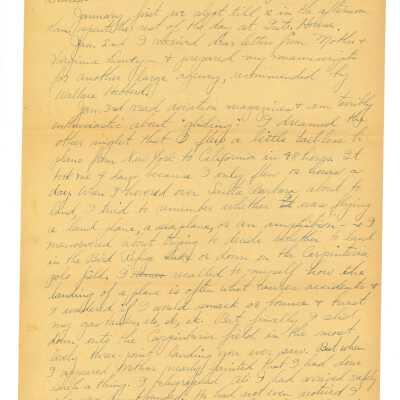 January first we slept till 2 in the afternoon
spent the rest of the day at
Jan. 2nd I received dear letters from Mother &
Virginia & prepared my manuscripts
for another large agency, recommended by
Wallace
Jan. 3rd read aviation magazines & am terribly
enthusiastic about "gliding." I dreamed the
other night that I flew a little tail-less bi-
plane from New York to California in 48 hours. It
took me 4 days because I only flew 12 hours a
day. When I hovered over Santa Barbara about to
land, I tried to remember whether I was flying
a land plane, a seaplane, or an amphibian - & I
manouvered about trying to decide whether to land
in the Bird Refuge or down on the Carpinteria
golf field. I recalled to myself how the
landing of a plane is often what causes accidents &
I wondered if I would smash or bounce & bust
my gas tank, etc, etc, etc. But finally, I shot
down onto the Carpinteria field in the most
lovely three-point landing you ever saw. But when
I appeared Mother nearly fainted that I had done
such a thing. I telegraphed that I had arrived safely
He had not even noticed I